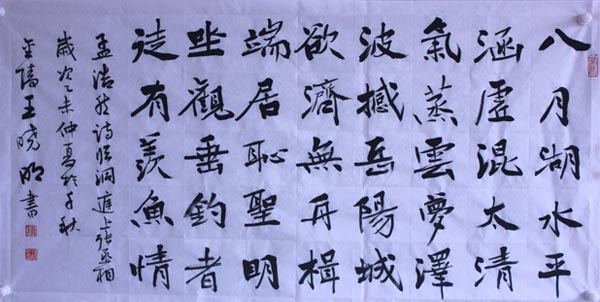 八月湖水平
涵虛混太清
氣蒸雲夢澤
波撼岳陽城
欲濟無舟楫
端居恥聖明
坐觀垂釣者
徒有羨魚情
孟浩然詩临洞庭上张丞相
歲次乙未仲夏於千秋
王晓明書